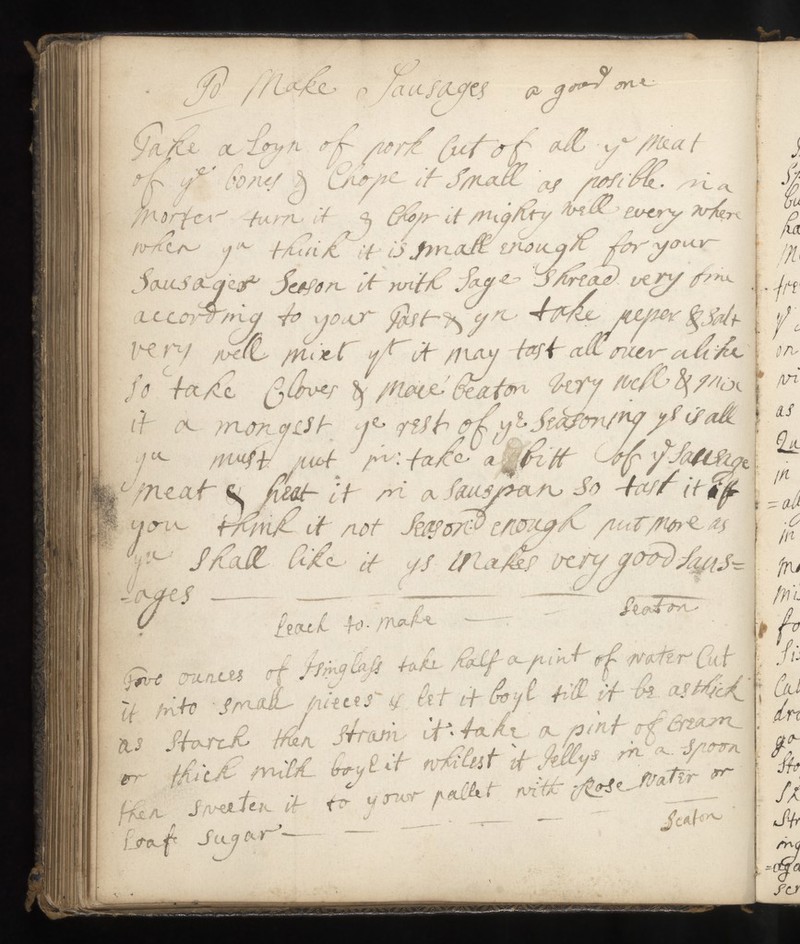 To Make Sausages a good one
Take a Loyn of pork Cut of all ye Meat
of ye bones & Chope it Small as posible in a
Morter turn it & Chop it mighty well every where
when yu think it is small enough for your
Sausages Season it with Sage Shread very fine
according to your Tast & yn take peper & Salt
very well mixt yt it may tast all over alike
So take Cloves & Mace beaton very well & mix
it a mongest ye rest of ye Seasoning ys is all
yu must put in: take a bitt of ye Sausage
meat & heat it in a Sauspan So tast it if
you think it not Seasond enough put more as
yu Shall like it ys Makes very good Saus=
=ages
Leach to make Seaton
Two ounces of Isinglass take half a pint of water Cut
it into small pieces & let it boyl till it be as thick
as Starch then Strain it: take a pint of Cream
or thick milk boyl it whilest it Jellys in a Spoon
then Sweeten it to your pallet with Rose water or
Loaf Sugar Seaton